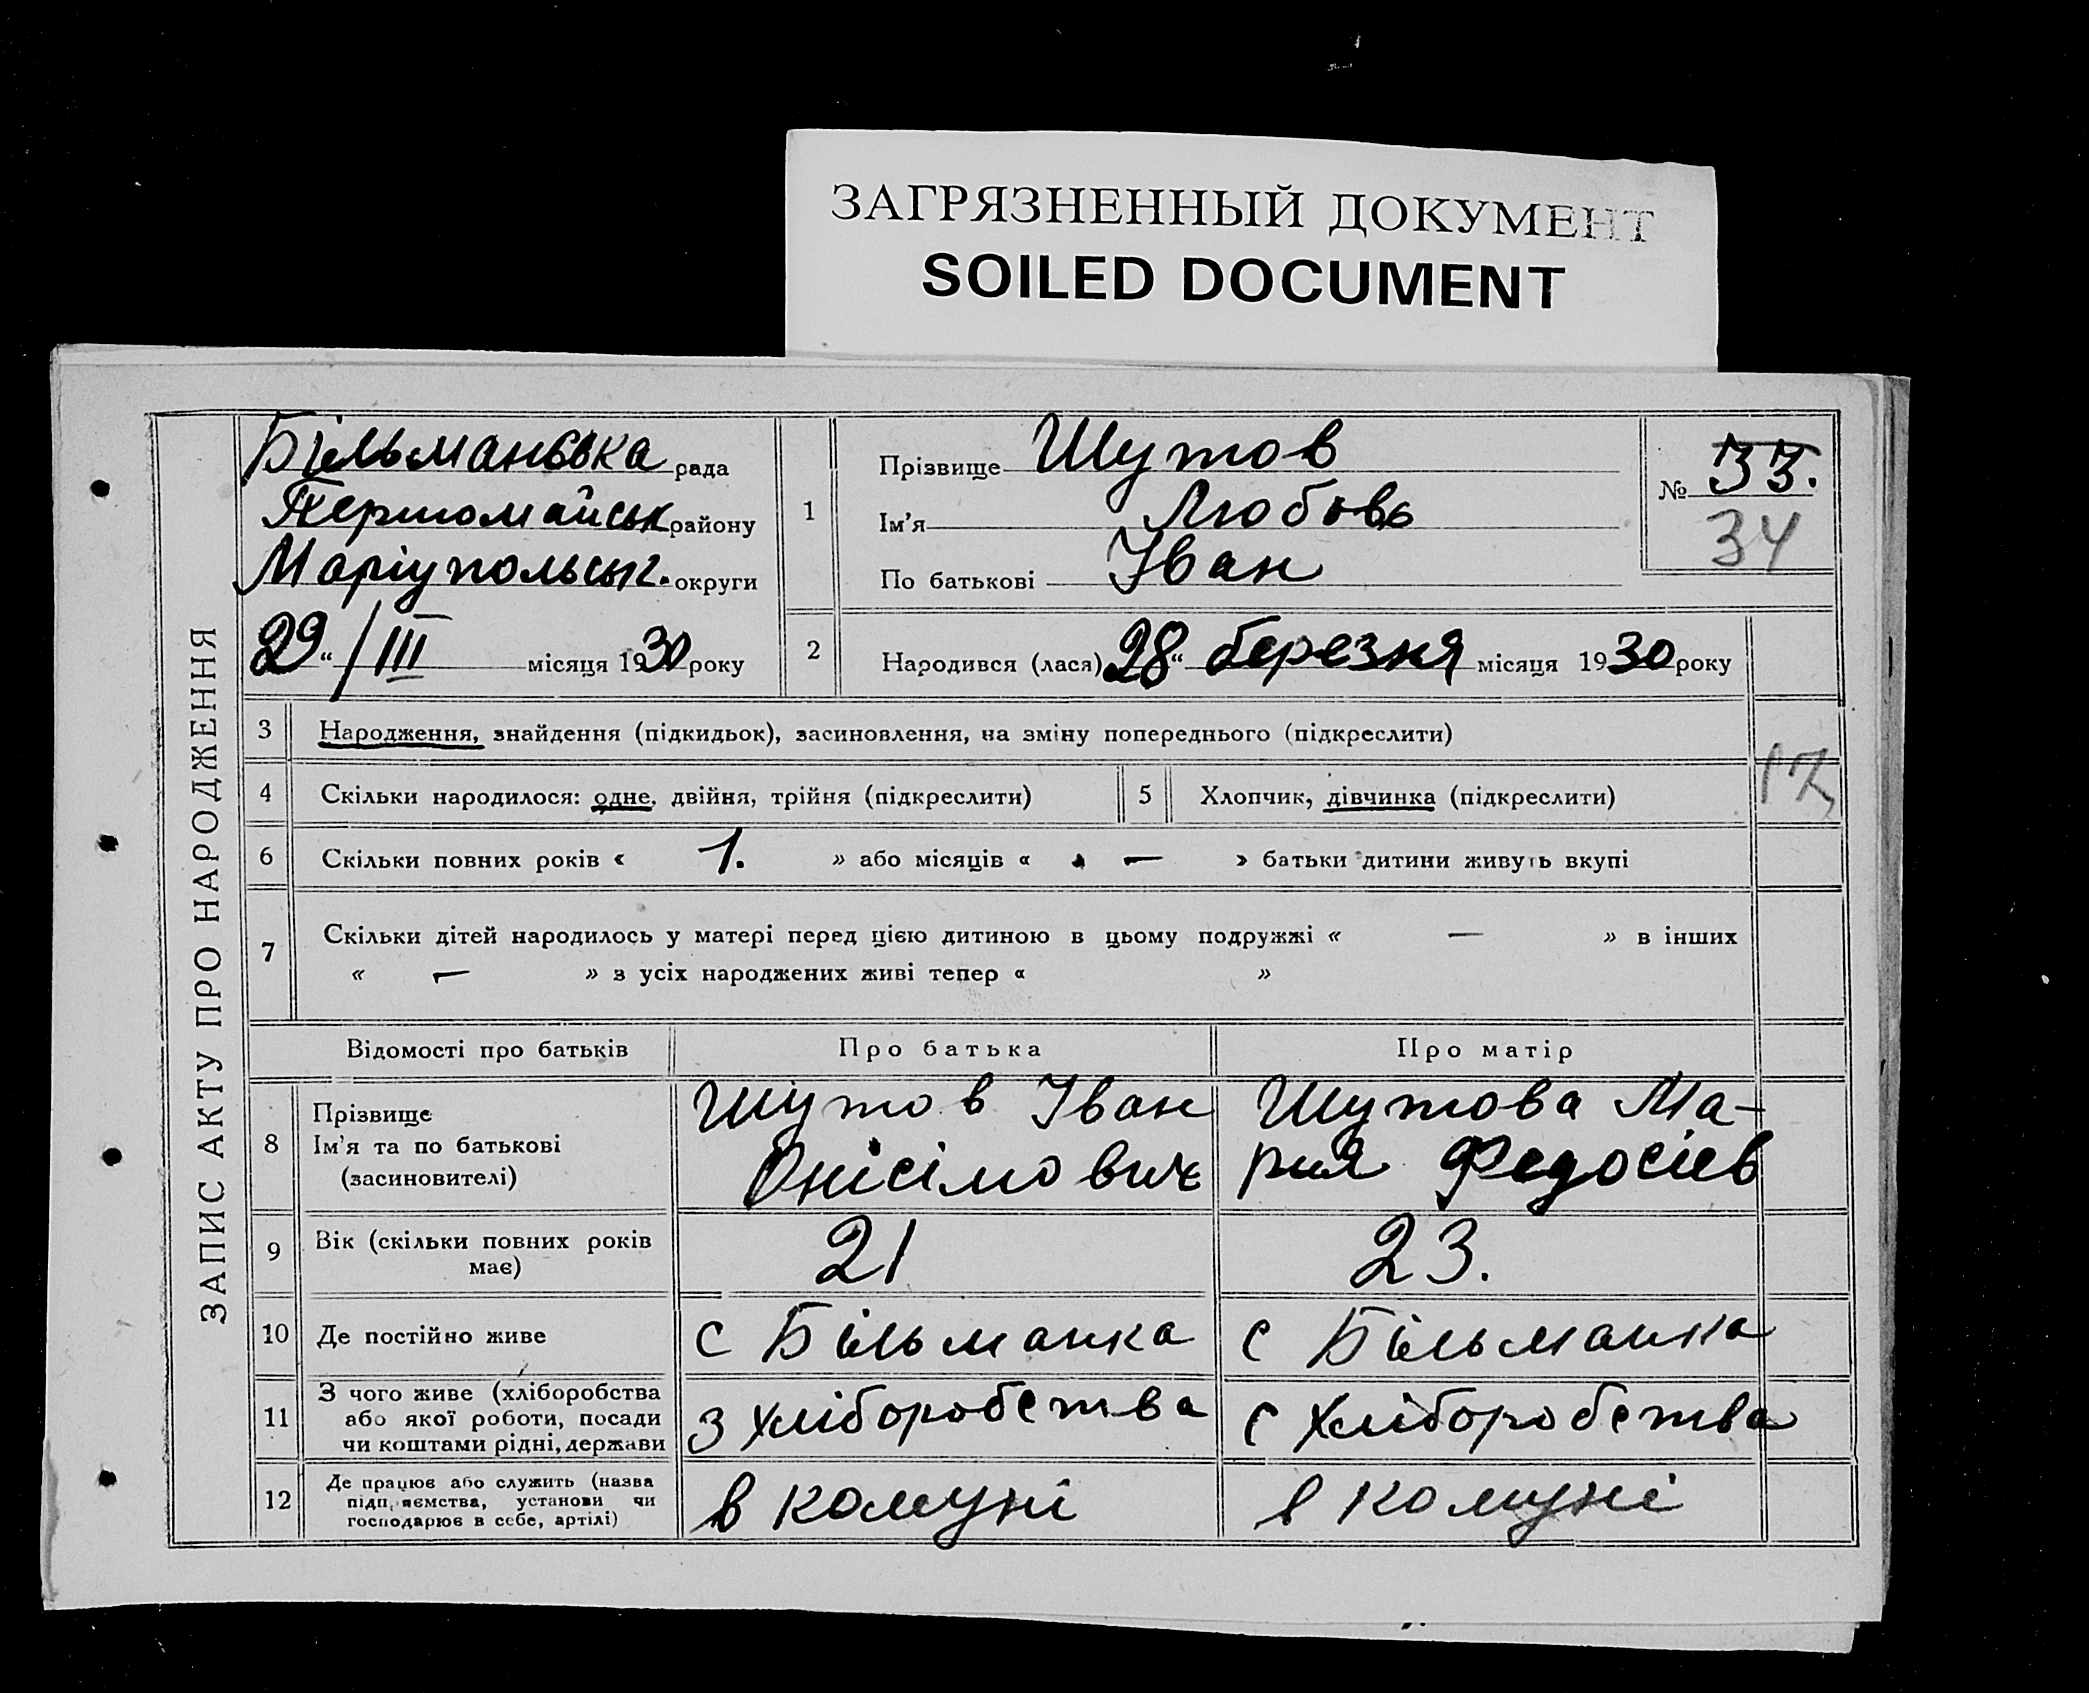 ЗАГРЯЗНЕННЫЙ ДОКУМЕНТ
SOILED DOCUMENT
ЗАПИС АКТУ ПРО НАРОДЖЕННЯ
Більманська рада
Першомайськ району
Маріупольськ. округи
29 “ / III місяця 1930 року
1
Прізвище Шутов
Ім’я Любовь
По батькові Іван
№ 33.
34
2
Народився (лася) 28 “ березня місяця 1930 року
3 Народження, знайдення (підкидьок), засиновлення, на зміну попереднього (підкреслити)
4 Скільки народилося: одне, двійня, трійня (підкреслити)
5 Хлопчик, дівчинка (підкреслити)
6 Скільки повних років « 1. » або місяців « — » батьки дитини живуть вкупі
7 Скільки дітей народилось у матері перед цією дитиною в цьому подружжі « — » в інших
« — » з усіх народжених живі тепер « »
Відомості про батьків Про батька Про матір
8 Прізвище
Ім’я та по батькові
(засиновителі)
Шутов Іван
Онісімович
Шутова Ма-
рия Федосіев
9 Вік (скільки повних років
має)
21
23.
10 Де постійно живе
с Більманка
с Більманка
11 З чого живе (хліборобства
або якої роботи, посади
чи коштами рідні, держави
з хліборобства
с хліборобства
12 Де працює або служить (назва
підприємства, установи чи
господарює в себе, артілі)
в комуні
в комуні